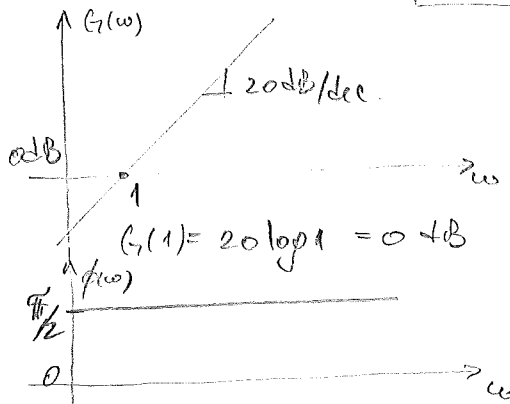 G(ω)
20 dB/dec.
0dB
1
ω
G(1) = 20 log 1 = 0 dB
φ(ω)
π/2
0
ω